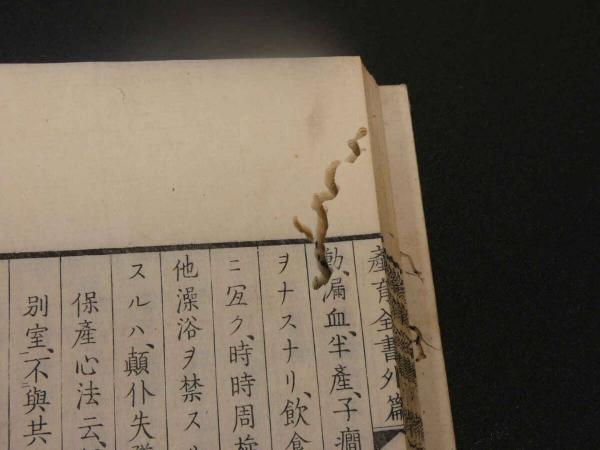 產育全書外篇
動、漏血、半產、子癇
ヲナスナリ、飲食
ニ宜ク、時時周旋
他澡浴ヲ禁ス
スルハ、顛仆失
保產心法云、
別室、不與共